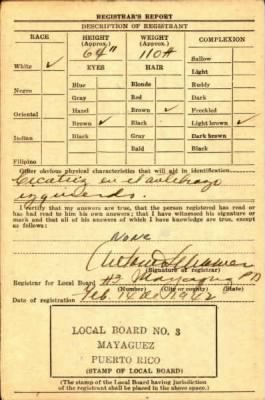 REGISTRAR'S REPORT
DESCRIPTION OF REGISTRANT
RACE HEIGHT (Approx.) WEIGHT (Approx.) COMPLEXION
64" 110#
White ✓ EYES HAIR Sallow
Light
Blue Blonde Ruddy
Negro Gray Red Dark
Hazel Brown ✓ Freckled
Oriental Brown ✓ Black Light brown ✓
Black Gray Dark brown
Indian Bald Black
Filipino
Other obvious physical characteristics that will aid in identification
Cicatriz en el antebrazo
izquierdo.
I certify that my answers are true, that the person registered has read or
has had read to him his own answers; that I have witnessed his signature
or mark and that all of his answers of which I have knowledge are true, except
as follows:
None
(Signature of registrar)
Registrar for Local Board #3 Mayaguez P.R.
(Number) (City or county) (State)
Date of registration Feb. 14 de 1942
LOCAL BOARD NO. 3
MAYAGUEZ
PUERTO RICO
(STAMP OF LOCAL BOARD)
(The stamp of the Local Board having jurisdiction
of the registrant shall be placed in the above space.)